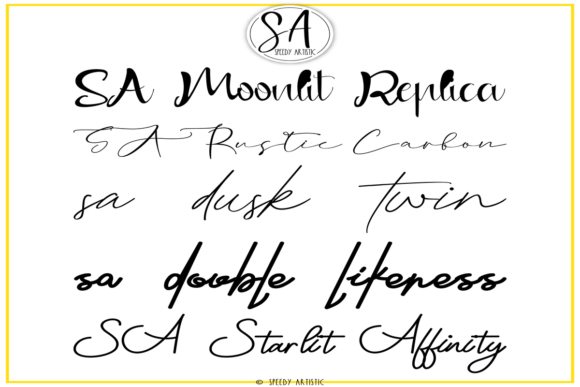 SA
SPEEDY ARTISTIC
SA Moonlit Replica
SA Rustic Carbon
sa dusk twin
sa double likeness
SA Starlit Affinity
© SPEEDY ARTISTIC